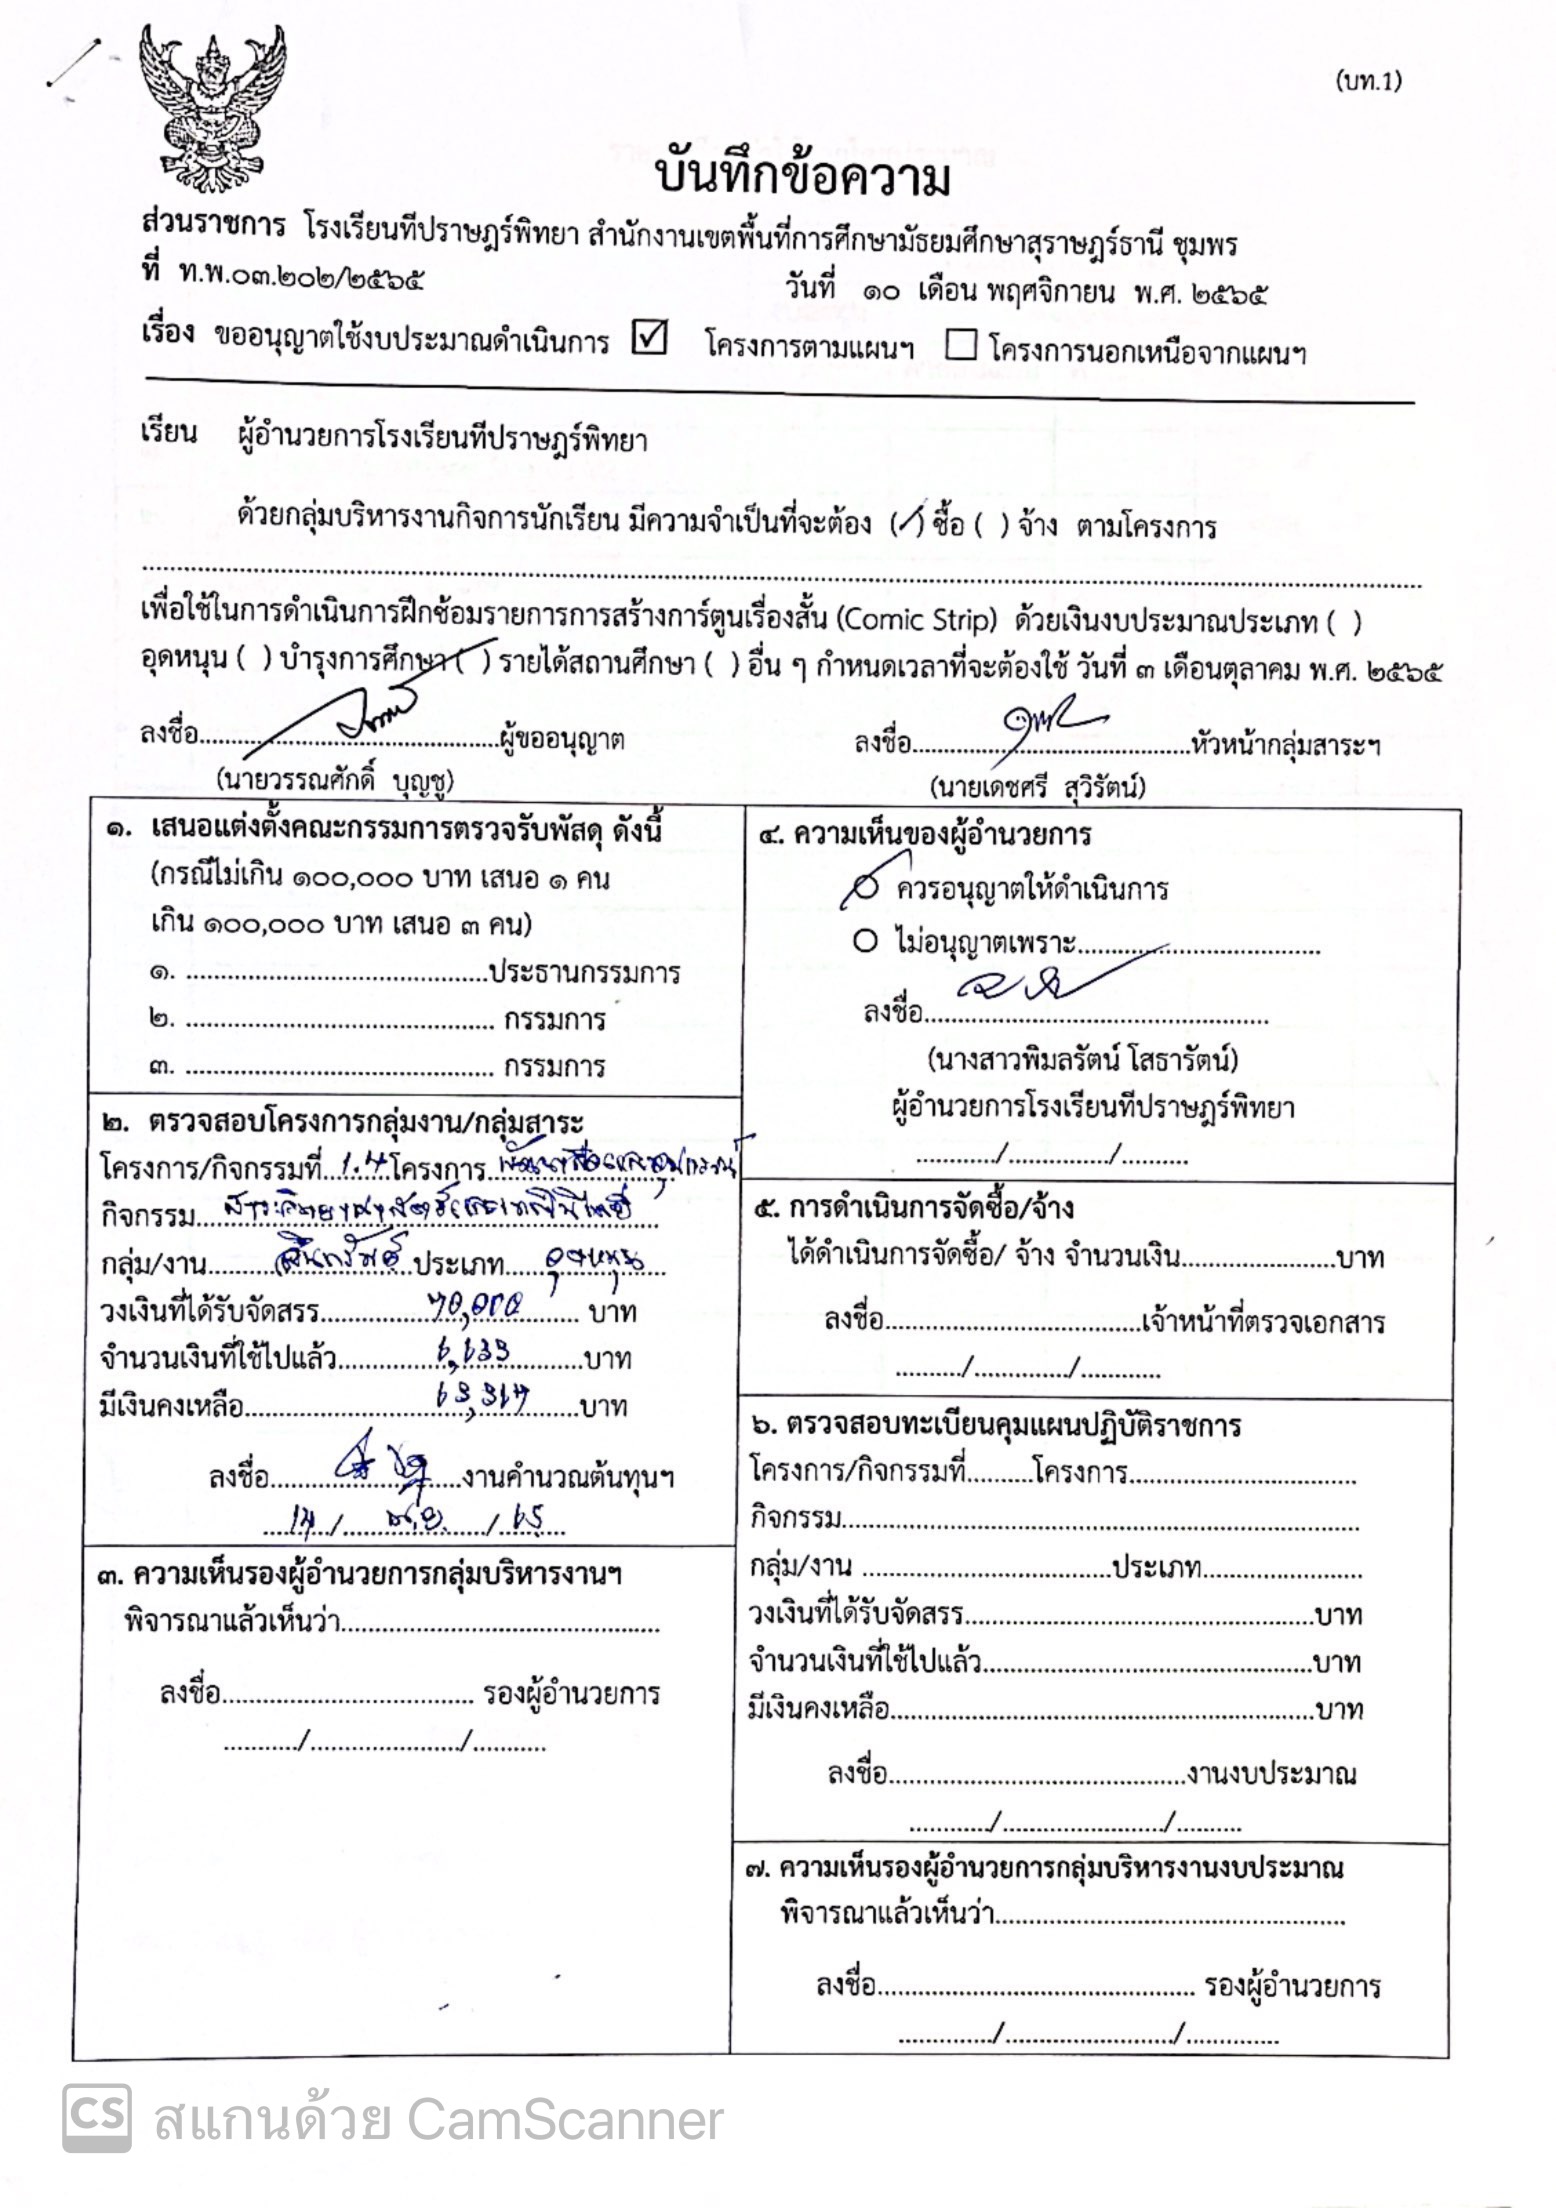 (บท.1)
บันทึกข้อความ
ส่วนราชการ โรงเรียนทีปราษฎร์พิทยา สำนักงานเขตพื้นที่การศึกษามัธยมศึกษาสุราษฎร์ธานี ชุมพร
ที่ ท.พ.๐๓.๒๐๒/๒๕๖๕ วันที่ ๑๐ เดือน พฤศจิกายน พ.ศ. ๒๕๖๕
เรื่อง ขออนุญาตใช้งบประมาณดำเนินการ ☑ โครงการตามแผนฯ ☐ โครงการนอกเหนือจากแผนฯ
เรียน ผู้อำนวยการโรงเรียนทีปราษฎร์พิทยา
ด้วยกลุ่มบริหารงานกิจการนักเรียน มีความจำเป็นที่จะต้อง (/) ซื้อ ( ) จ้าง ตามโครงการ
เพื่อใช้ในการดำเนินการฝึกซ้อมรายการการสร้างการ์ตูนเรื่องสั้น (Comic Strip) ด้วยเงินงบประมาณประเภท ( )
อุดหนุน ( ) บำรุงการศึกษา ( ) รายได้สถานศึกษา ( ) อื่น ๆ กำหนดเวลาที่จะต้องใช้ วันที่ ๓ เดือนตุลาคม พ.ศ. ๒๕๖๕
ลงชื่อ..........ผู้ขออนุญาต ลงชื่อ..........หัวหน้ากลุ่มสาระฯ
(นายวรรณศักดิ์ บุญชู) (นายเดชศรี สุวิรัตน์)
๑. เสนอแต่งตั้งคณะกรรมการตรวจรับพัสดุ ดังนี้
(กรณีไม่เกิน ๑๐๐,๐๐๐ บาท เสนอ ๑ คน
เกิน ๑๐๐,๐๐๐ บาท เสนอ ๓ คน)
๑. ..........ประธานกรรมการ
๒. .......... กรรมการ
๓. .......... กรรมการ
๒. ตรวจสอบโครงการกลุ่มงาน/กลุ่มสาระ
โครงการ/กิจกรรมที่ 1.4 โครงการ พัฒนาสื่อและอุปกรณ์
กิจกรรม สาระวิทยาศาสตร์และเทคโนโลยี
กลุ่ม/งาน..........ประเภท อุดหนุน
วงเงินที่ได้รับจัดสรร 70,000 บาท
จำนวนเงินที่ใช้ไปแล้ว 6,633 บาท
มีเงินคงเหลือ..........บาท
ลงชื่อ..........งานคำนวณต้นทุนฯ
14 / พ.ย. / 65
๓. ความเห็นรองผู้อำนวยการกลุ่มบริหารงานฯ
พิจารณาแล้วเห็นว่า..........
ลงชื่อ.......... รองผู้อำนวยการ
........../........../..........
๔. ความเห็นของผู้อำนวยการ
ควรอนุญาตให้ดำเนินการ
ไม่อนุญาตเพราะ..........
ลงชื่อ..........
(นางสาวพิมลรัตน์ โสธารัตน์)
ผู้อำนวยการโรงเรียนทีปราษฎร์พิทยา
........../........../..........
๕. การดำเนินการจัดซื้อ/จ้าง
ได้ดำเนินการจัดซื้อ/ จ้าง จำนวนเงิน..........บาท
ลงชื่อ..........เจ้าหน้าที่ตรวจเอกสาร
........../........../..........
๖. ตรวจสอบทะเบียนคุมแผนปฏิบัติราชการ
โครงการ/กิจกรรมที่..........โครงการ..........
กิจกรรม..........
กลุ่ม/งาน ..........ประเภท..........
วงเงินที่ได้รับจัดสรร..........บาท
จำนวนเงินที่ใช้ไปแล้ว..........บาท
มีเงินคงเหลือ..........บาท
ลงชื่อ..........งานงบประมาณ
........../........../..........
๗. ความเห็นรองผู้อำนวยการกลุ่มบริหารงานงบประมาณ
พิจารณาแล้วเห็นว่า..........
ลงชื่อ.......... รองผู้อำนวยการ
........../........../..........
CS สแกนด้วย CamScanner